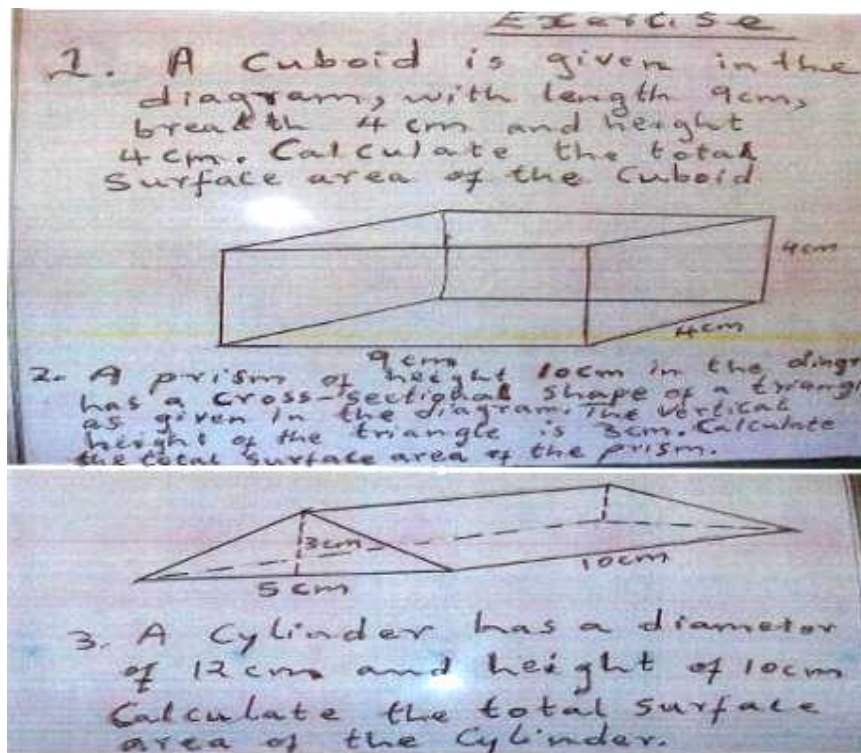 Exercise
1. A Cuboid is given in the
diagram, with length 9cm,
breadth 4 cm and height
4 cm. Calculate the total
Surface area of the Cuboid
4cm
4cm
9 cm
2. A prism of height 10cm in the diagr
has a cross-sectional shape of a triang
as given in the diagram. The vertical
height of the triangle is 3cm. Calculate
the total surface area of the prism.
3cm
10cm
5 cm
3. A Cylinder has a diameter
of 12 cm and height of 10cm
Calculate the total surface
area of the Cylinder.